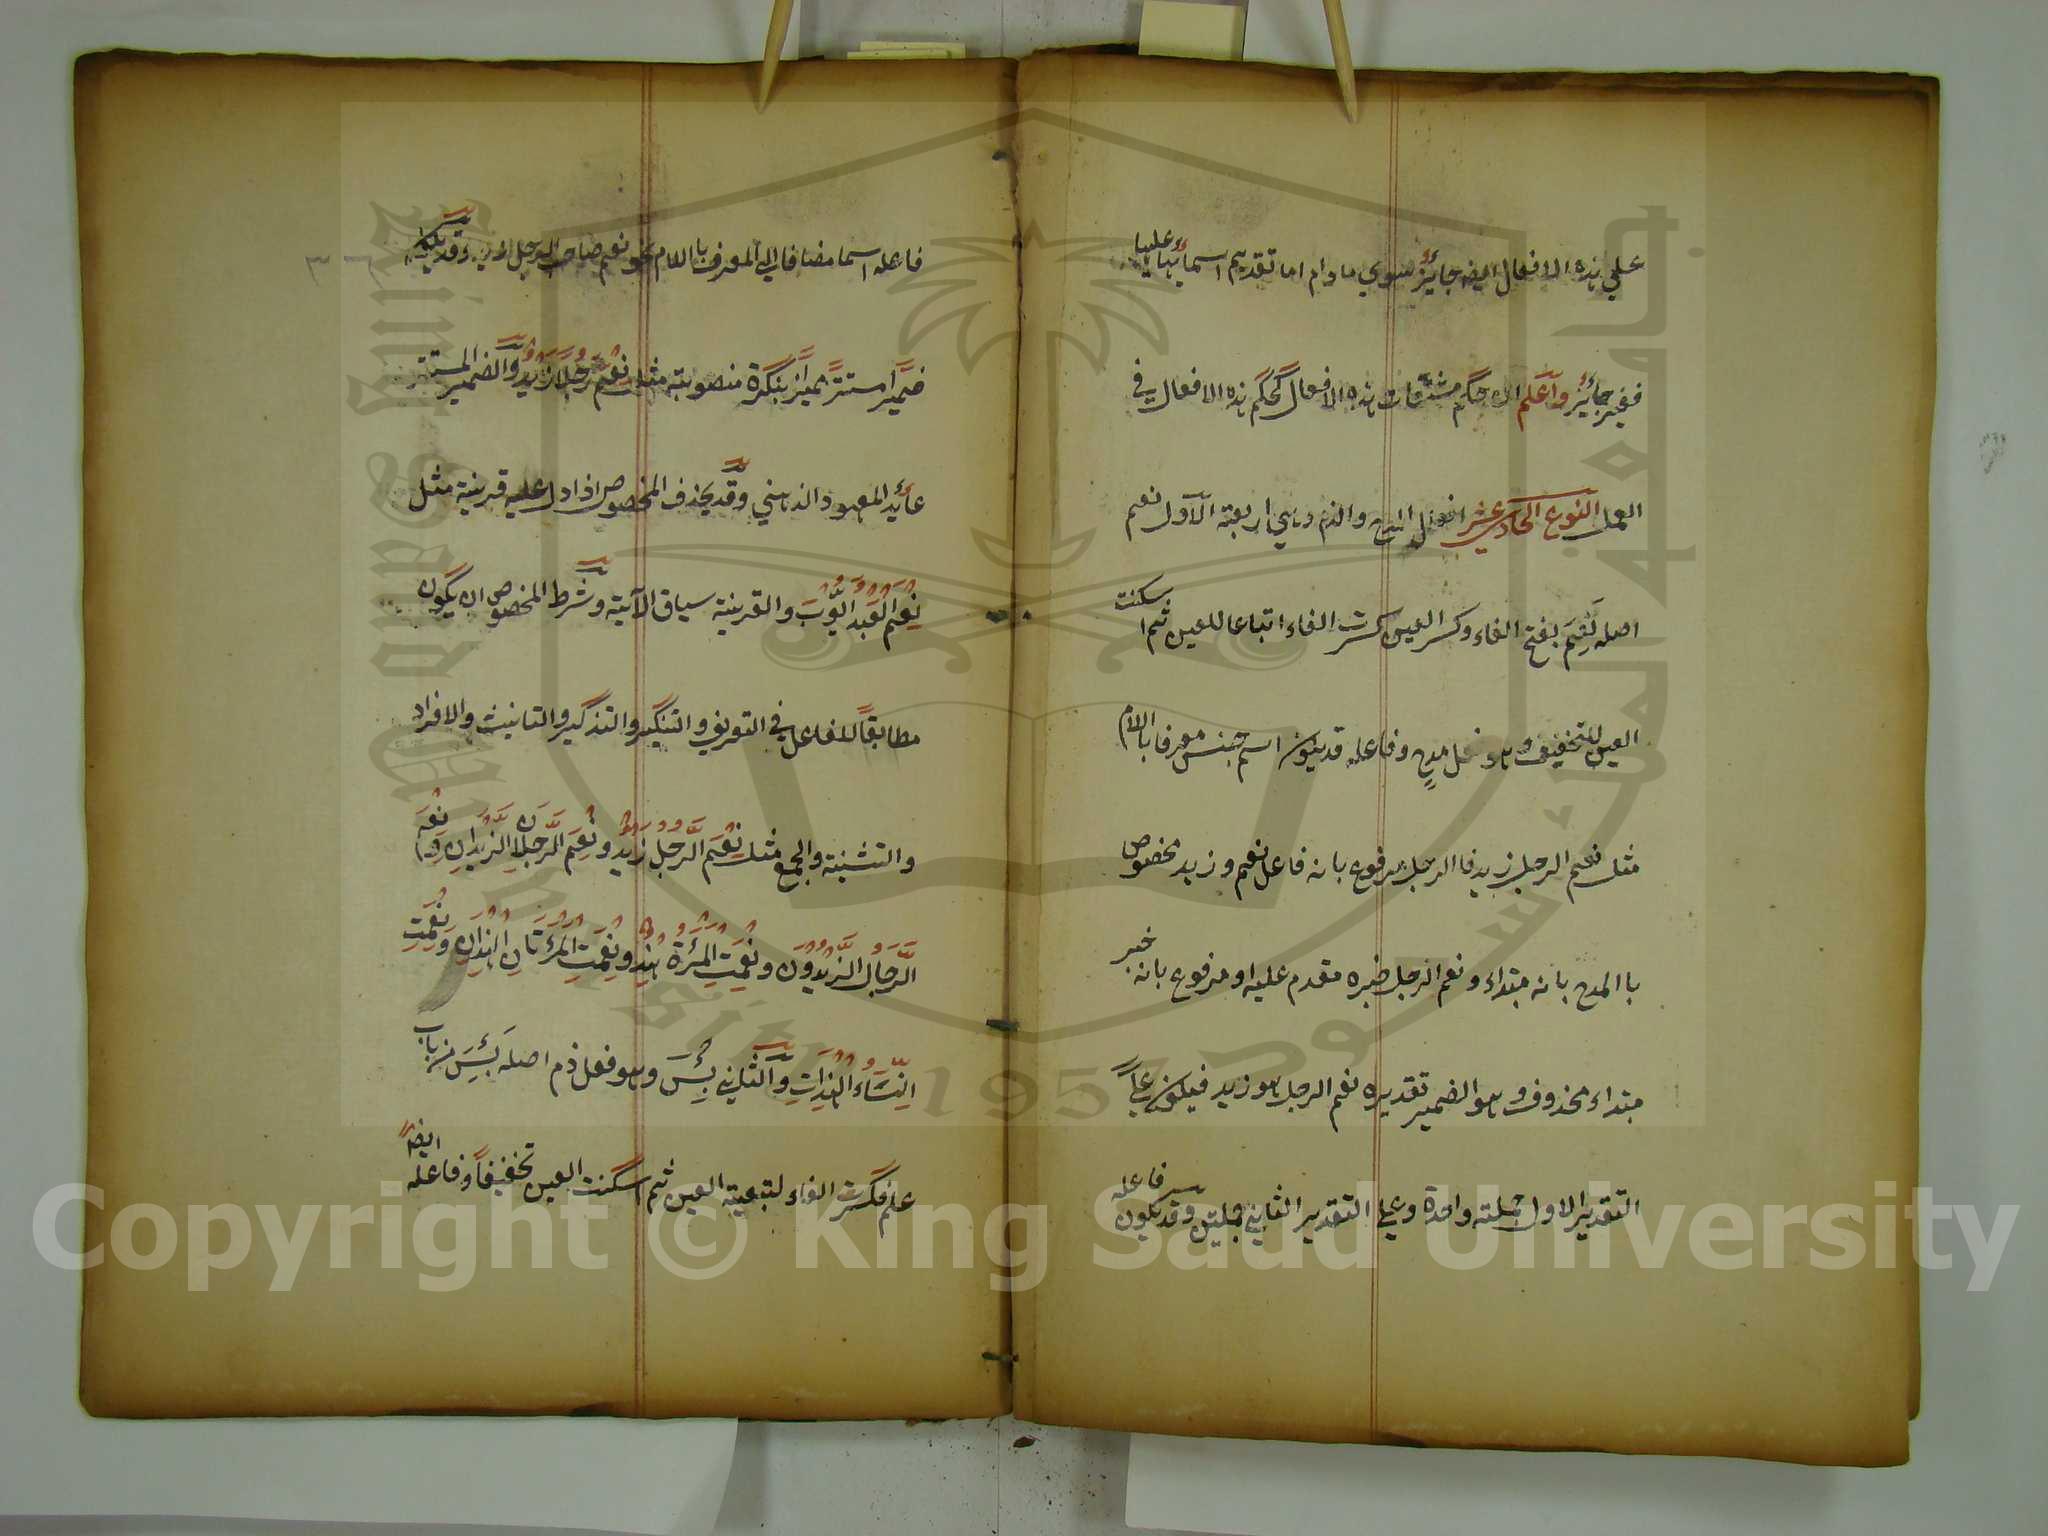 علي هذه الافعال ايضه جائز سوي مادام اما تقديم اسمائها عليها
فغير جائز واعلم ان حكم مشتقات هذه الافعال كحكم هذه الافعال في
العمل النوع الحادي عشر افعال المدح والذم وهي اربعة الاول نعم
اصله نَعِمَ بفتح الفاء وكسر العين كسرت الفاء اتباعا للعين ثم اسكنت
العين للتخفيف وهو فعل مدح وفاعله قد يكون اسم جنس معرفا باللام
مثل نعم الرجل زيد فالرجل مرفوع بانه فاعل نعم وزيد مخصوص
باالمدح بانه مبتداء ونعم الرجل خبره مقدم عليه او مرفوع بانه خبر
مبتداء محذوف وهو الضمير تقديره نعم الرجل هو زيد فيكون علي
التقدير الاول جملته واحدة وعلي التقدير الثاني جملتين وقد يكون فاعله
فاعله اسما مضافا الي المعرف باللام نحو نعم صاحب الرجل زيد وقد يكون
ضميرًا مستترًا مميزًا بنكرة منصوبته مثل نِعْمَ رَجُلًا زَيْدٌ والضمير المستتر
عائد المعهود الذهني وقد يحذف المخصوص اذا دل عليه قرينة مثل
نِعْمَ الْعَبْدُ ايُّوْبَ والقرينة سياق الآية وشرط المخصوص ان يكون
مطابقاً للفاعل في التعريف والتنكير والتذكير والتانيث والافراد
والتثنيته والجمع مثل نِعْمَ الرَّجُلُ زَيْدٌ ونِعْمَ الرَّجُلَانِ الزَّيْدَانِ وَنِعْمَ
الرِّجَالُ الزَّيْدُوْنَ ونِعْمَتِ الْمَرْءَةُ هِنْدٌ ونِعْمَتِ الْمَرْءَتَانِ الْهِنْدَانِ وَنِعْمَتِ
النِّسَاءُ الْهِنْدَاتِ والثاني بِئْسَ وهو فعل ذم اصله بَئِسَ من باب
علم فكسرت الفاء لتبعيته العين ثم اسكنت العين تخفيفاً وفاعله ايضاً
Copyright © King Saud University
جامعة الملك سعود
King Saud University
1957